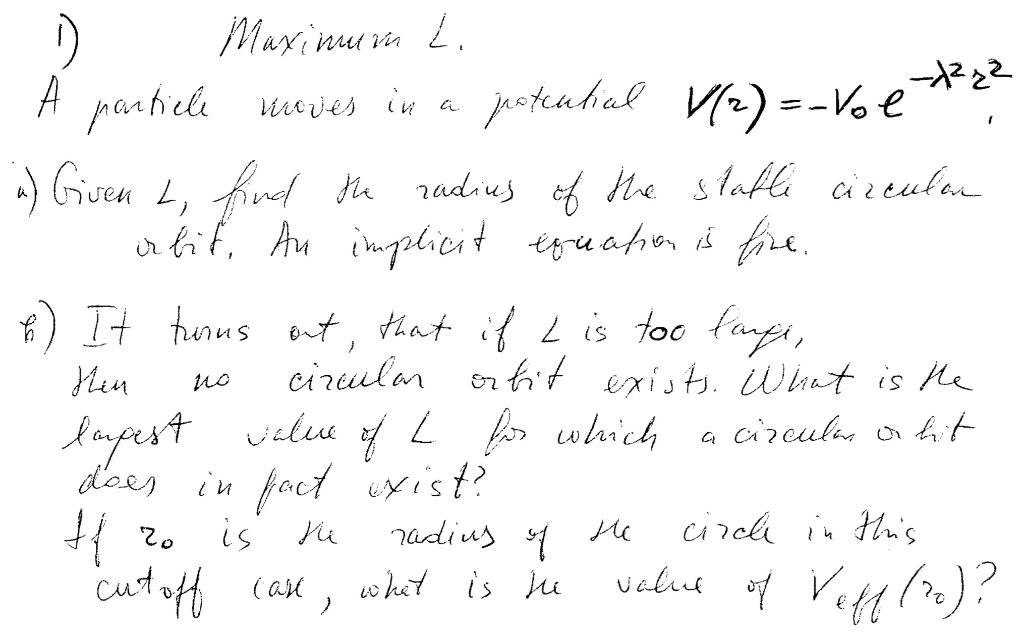 1) Maximum L.
A particle moves in a potential V(r) = -V₀ e^{-λ²r²},
a) Given L, find the radius of the stable circular
orbit. An implicit equation is fine.
b) It turns out, that if L is too large,
then no circular orbit exists. What is the
largest value of L for which a circular orbit
does in fact exist?
If r₀ is the radius of the circle in this
cutoff case, what is the value of V_eff(r₀)?